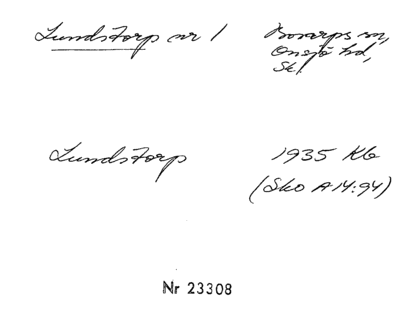 Lundstorp nr 1
Bosarps sn,
Onsjö hd,
Sk.
Lundstorp
1935 Kb
(Sko A 14:94)
Nr 23308